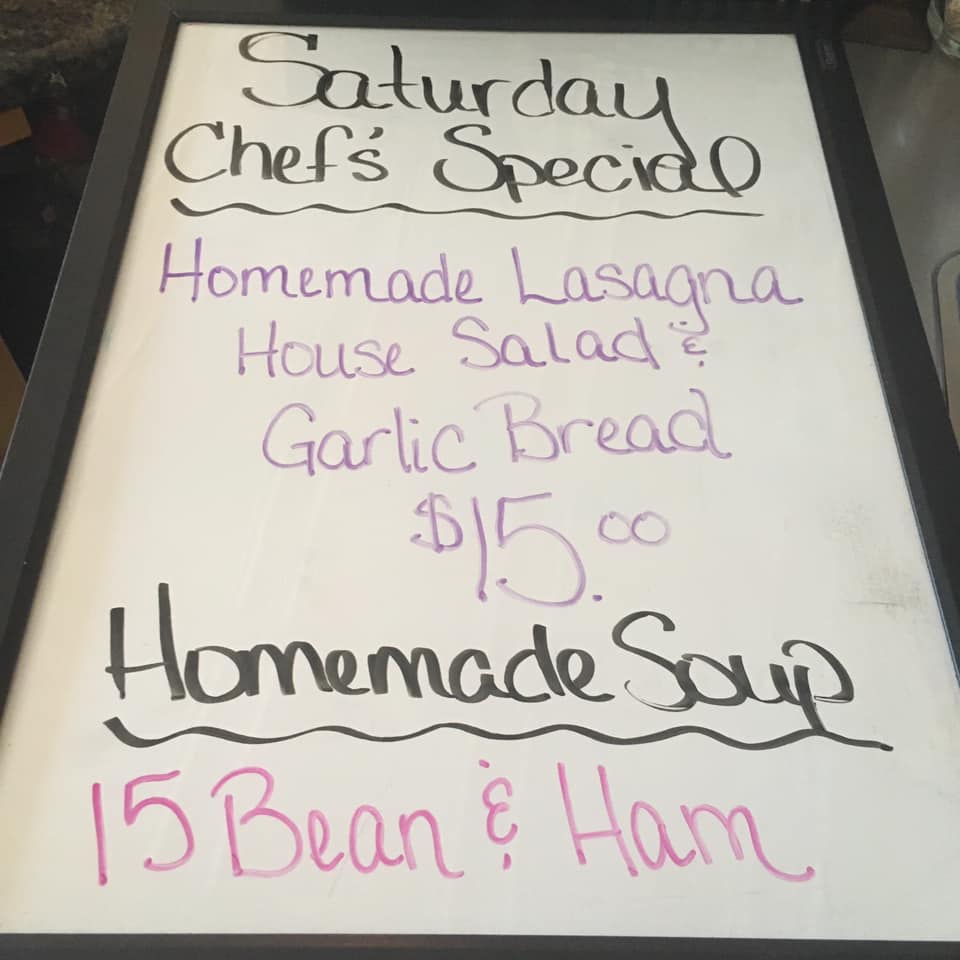 Saturday
Chef's Special
Homemade Lasagna
House Salad &
Garlic Bread
$15.00
Homemade Soup
15 Bean & Ham